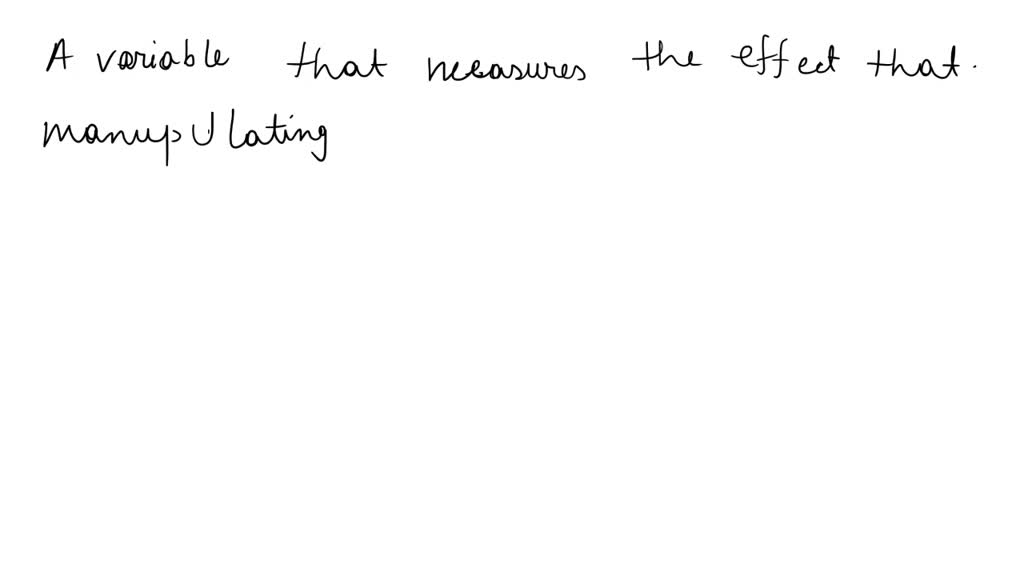 A variable that measures the effect that.
manupulating